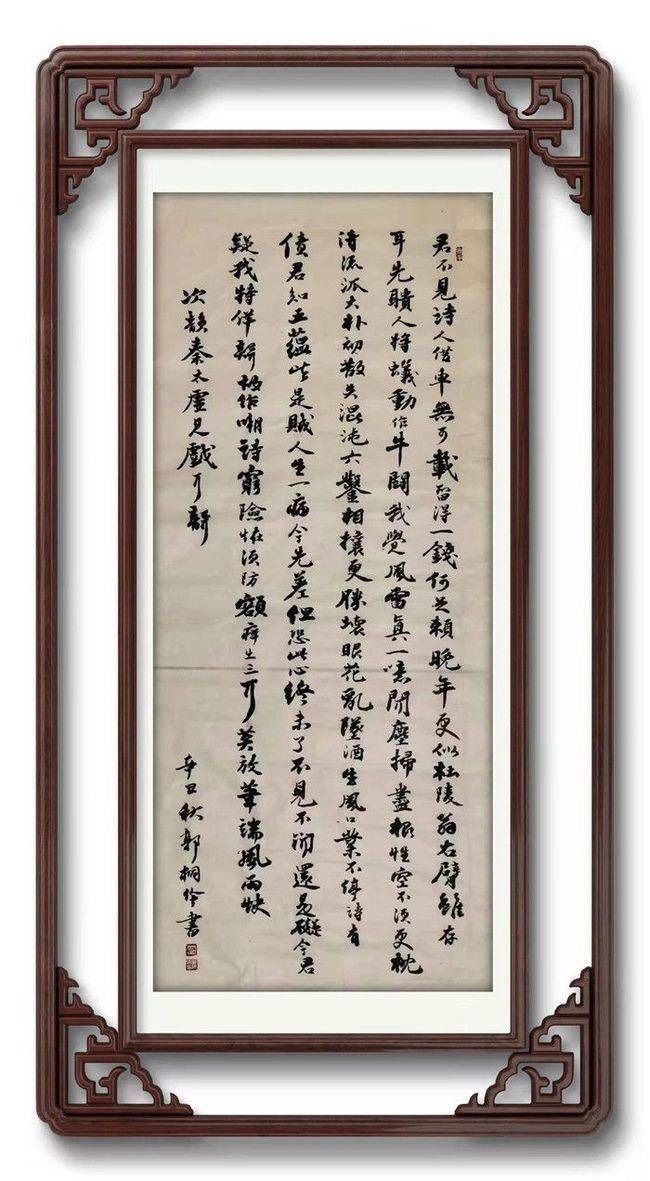 君不見詩人借車無可載留得一錢何足賴晚年更似杜陵翁右臂雖存
耳先聵人將蟻動作牛鬭我覺風雷真一噫聞塵掃盡根性空不須更枕
清流派大朴初散失混沌六鑿相攘更勝壞眼花亂墜酒生風口業不停詩有
債君知五蘊皆是賊人生一病今先差但恐此心終未了不見不聞還是礙今君
疑我特佯聾故作嘲詩窮險怪須防額痒出三耳莫放筆端風雨快
次韻秦太虛見戲耳聾
辛丑秋郭桐伶書